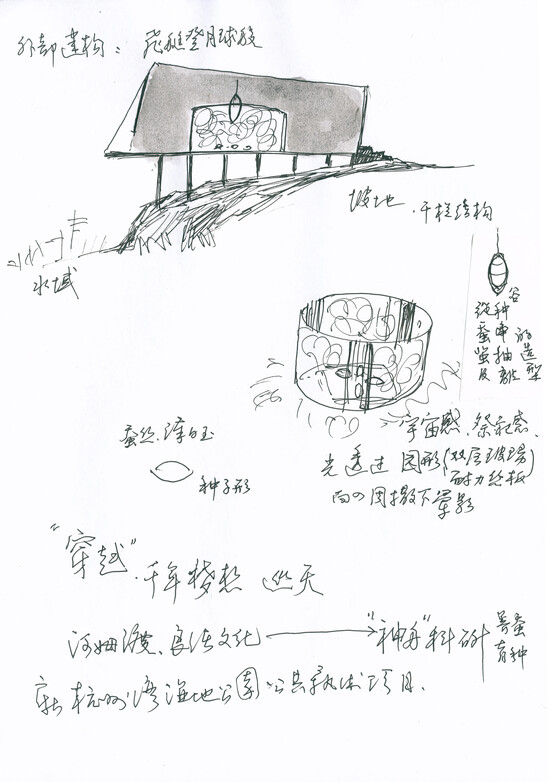 外部建构：飞艇登月球般
坡地·干栏结构
水域
谷种
的造型
蚕丝、泽白玉
种子形
宇宙感、祭祀感、
光透过图形（双层玻璃
耐力丝板）
向四周撒下晕影
"穿越"·千年梦想 巡天
河姆渡、良渚文化 → "神舟"科研
養蚕
育种
杭州湾海地公園公共藝术项目.